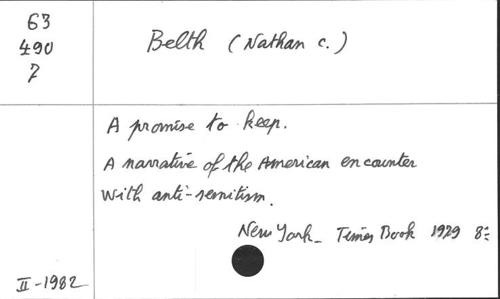 63
490
7
Belth (Nathan C.)
A promise to keep.
A narrative of the American encounter
with anti-semitism.
New York_ Times Book 1929 8º
II-1982